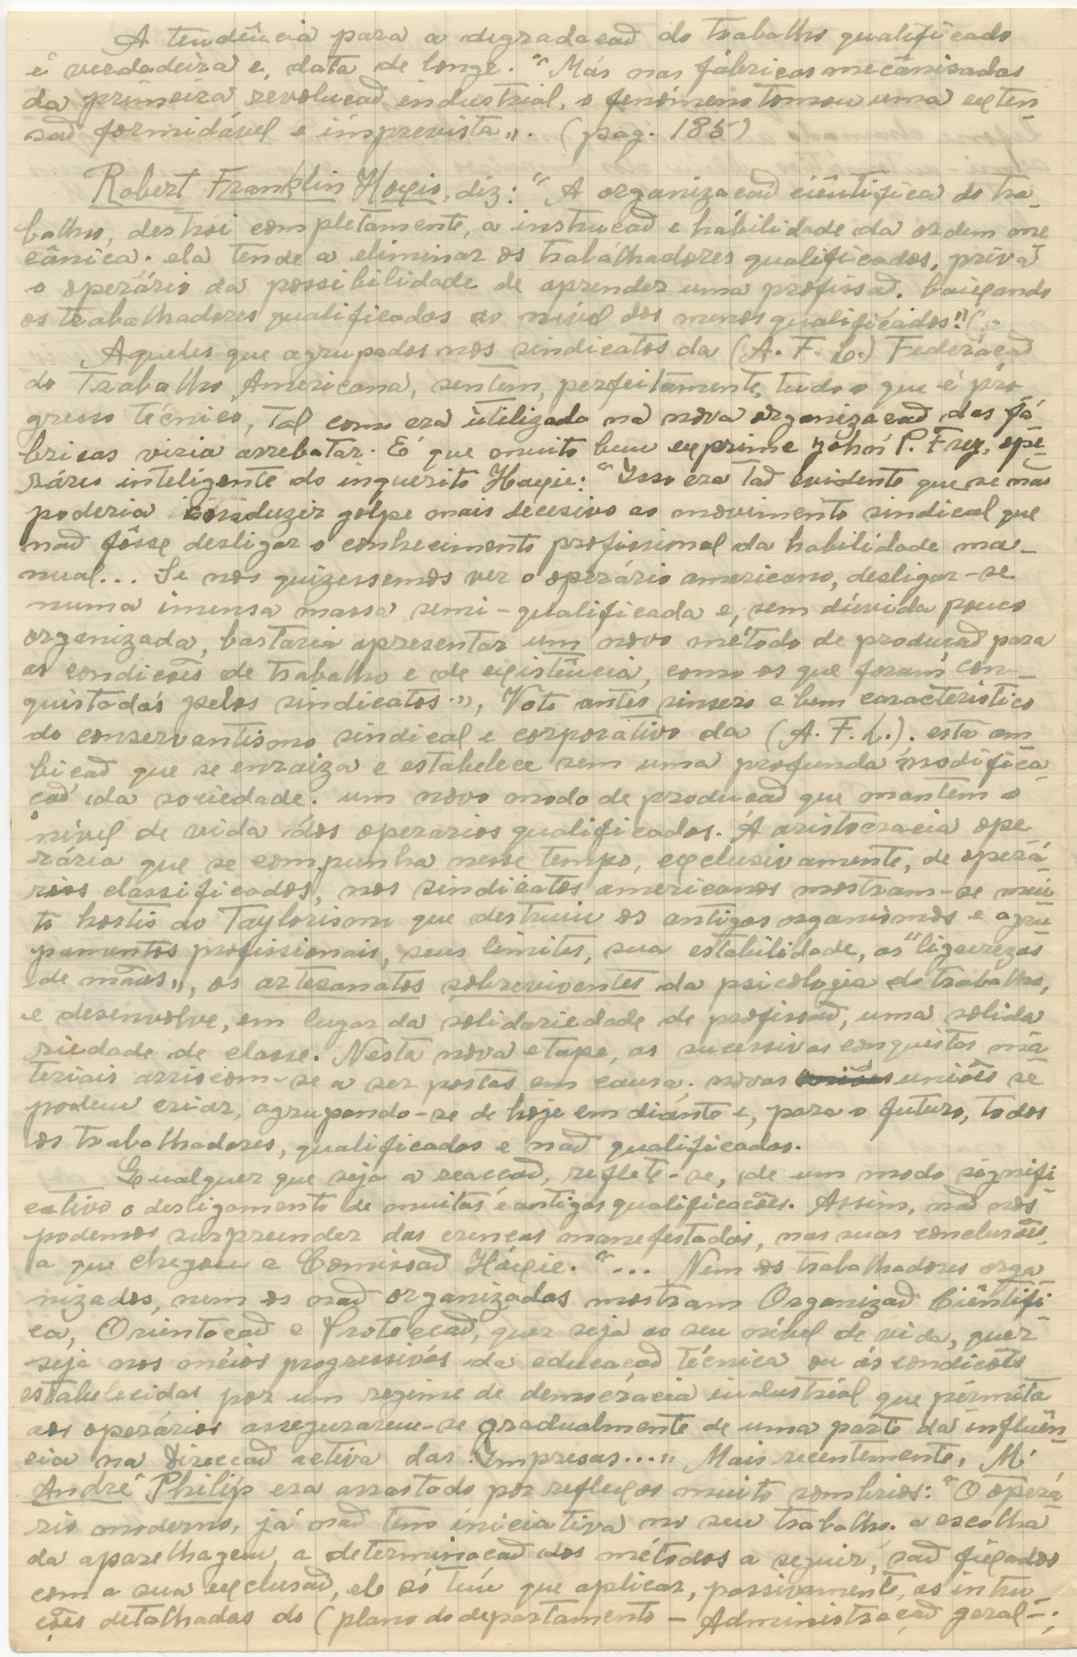 A tendência para a degradacaõ do trabalho qualificado
é verdadeira e, data de longe. "Más nas fábricas mecânisadas
da primeira revolucaõ endustrial, o fenómeno tomou uma exten-
saõ formidável e imprevista". (pag. 185)
Robert Franklin Hoxie, diz: "A organizacaõ ciêntifica do tra-
balho, destroi completamente, a instrucaõ e hábilidade da ordem me
cânica. ela tende a eliminar os trabálhadores qualificados, priva
o operário da possibilidade de aprender uma profissaõ. baixando
os trabalhadores qualificados ao nível dos menos qualificádos"(.
Aqueles que agrupados nos sindicatos da (A. F. L.) Federacaõ
do Trabalho Américana, sentem, perfeitamente, tudo o que é pro
gresso técnico, tal como era utilizado na nova organizacaõ das fá
bricas viria arrebatar. É o que muito bem exprime Jóhn P. Frey, ope-
rário inteligente do inquerito Hoxie: "Isso era taõ evidente que se naõ
poderia conduzir gólpe mais decesivo ao movimento sindical que
naõ fôsse desligar o conhecimento profissional da habilidade ma-
nual... Se nós quizessemos ver o operário americano, desligar-se
numa imensa massa semi-qualificada e, sem dúvida pouco
organizada, bastaria apresentar um novo método de producaõ para
as condicoẽs de trabalho e de existência, como os que foram con-
quistadas pelos sindicatos.", Voto antes sinsero e bem caracteristico
do conservantismo sindical e corporativo da (A. F. L.). esta am
bicaõ que se enraiza e estabelece sem uma profunda módifica-
caõ da sociedade. um novo modo de producaõ que mantém o
nível de vida dos operarios qualificados. A aristocracia ope
rária que se compunha nesse tempo, exclusivamente, de operá-
rios classificados, nos sindicatos americanos mostram-se mui
to hostis ao Taylorismo que destruiu os antigos organismos e agru
pamentos profissionais, seus limites, sua estabilidade, as "ligeirezas
de maõs", os artesanatos sobreviventes da psicologia do trabalho,
e desenvolve, em lugar da solidariedade de profissaõ, uma solida
riedade de classe. Nesta nova etape, as sucessivas conquistas má-
teriais arriscam-se a ser postas em causa. novas uniões se
podem criar, agrupando-se de hoje em diánte e, para o futuro, todos
os trabalhadores, qualificados e naõ qualificados.
Qualquer que seja a reaccaõ, reflete-se, de um modo signifi
cativo o desligamento de muitas e antigas qualificacões. Assim, naõ nos
podemos surpreender das crencas manefestadas, nas suas conclusões
a que chegou a Comissaõ Hóxie. "... Nem os trabalhadores orga
nizados, nem os naõ organizados mostram Organizaõ Ciêntifi-
ca, Orientacaõ e Protecaõ, quer seja ao seu nível de vida, quer
seja nos méios progressivos da educacaõ técnica ou ás condicões
estabelecidas por um regime de democracia industriál que permita
aos operários assegurarem-se gradualmente de uma parte da influên-
cia na direccaõ activa das Empresas...." Mais recentemente, M.
André Philip era arrastado por reflexos muito sombrios: "O operá-
rio moderno, já naõ tem iniciativa no seu trabalho. a escolha
da aparelhagem, a determinacaõ dos métodos a seguir, saõ fixados
com a sua exclusaõ, ele só tem que aplicar, passivamente, as intru
cões detalhadas do (plano do departamento - Administracaõ geral-;